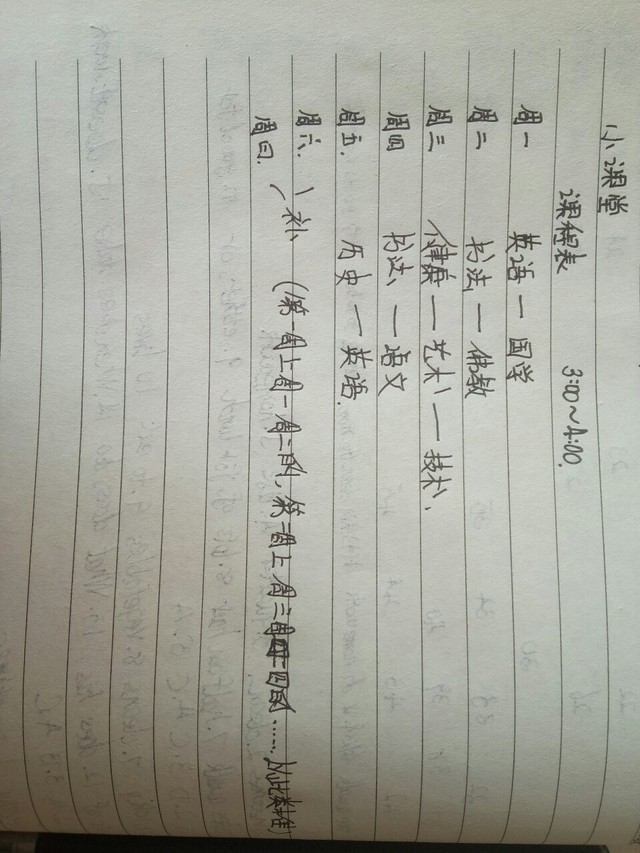 小课堂
课程表 3:00~4:00.
周一 英语 — 国学
周二 书法 — 佛教
周三 健康 — 艺术 — 技术.
周四 书法 — 语文
周五. 历史 — 英语.
周六. 补 (第一周上周一周二的, 第二周上周三周四的…… 以此类推
周日.